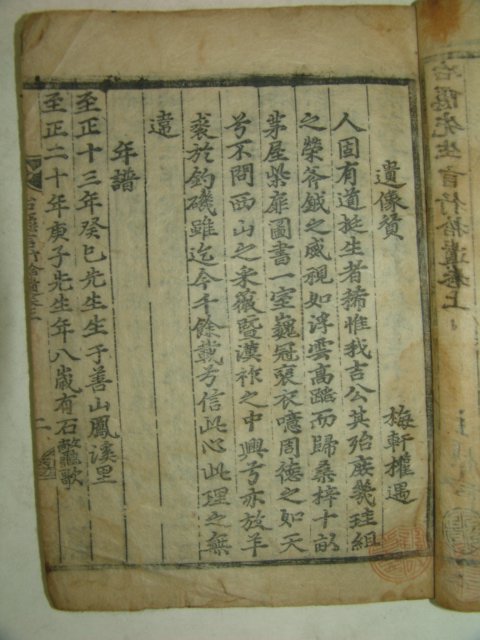 冶隱先生言行拾遺卷上
遺像賛
梅軒權遇
人固有道挺生者稀惟我吉公其殆庶幾珪組
之榮斧鉞之威視如浮雲高蹈而歸桑梓十畝
茅屋柴扉圖書一室巍冠褒衣噫周德之如天
兮不問西山之采薇曁漢祚之中興兮亦放羊
裘於釣磯雖迄今千餘載兮信此心此理之無
違
年譜
至正十三年癸巳先生生于善山鳳溪里
至正二十年庚子先生年八歲有石鼈歌
二